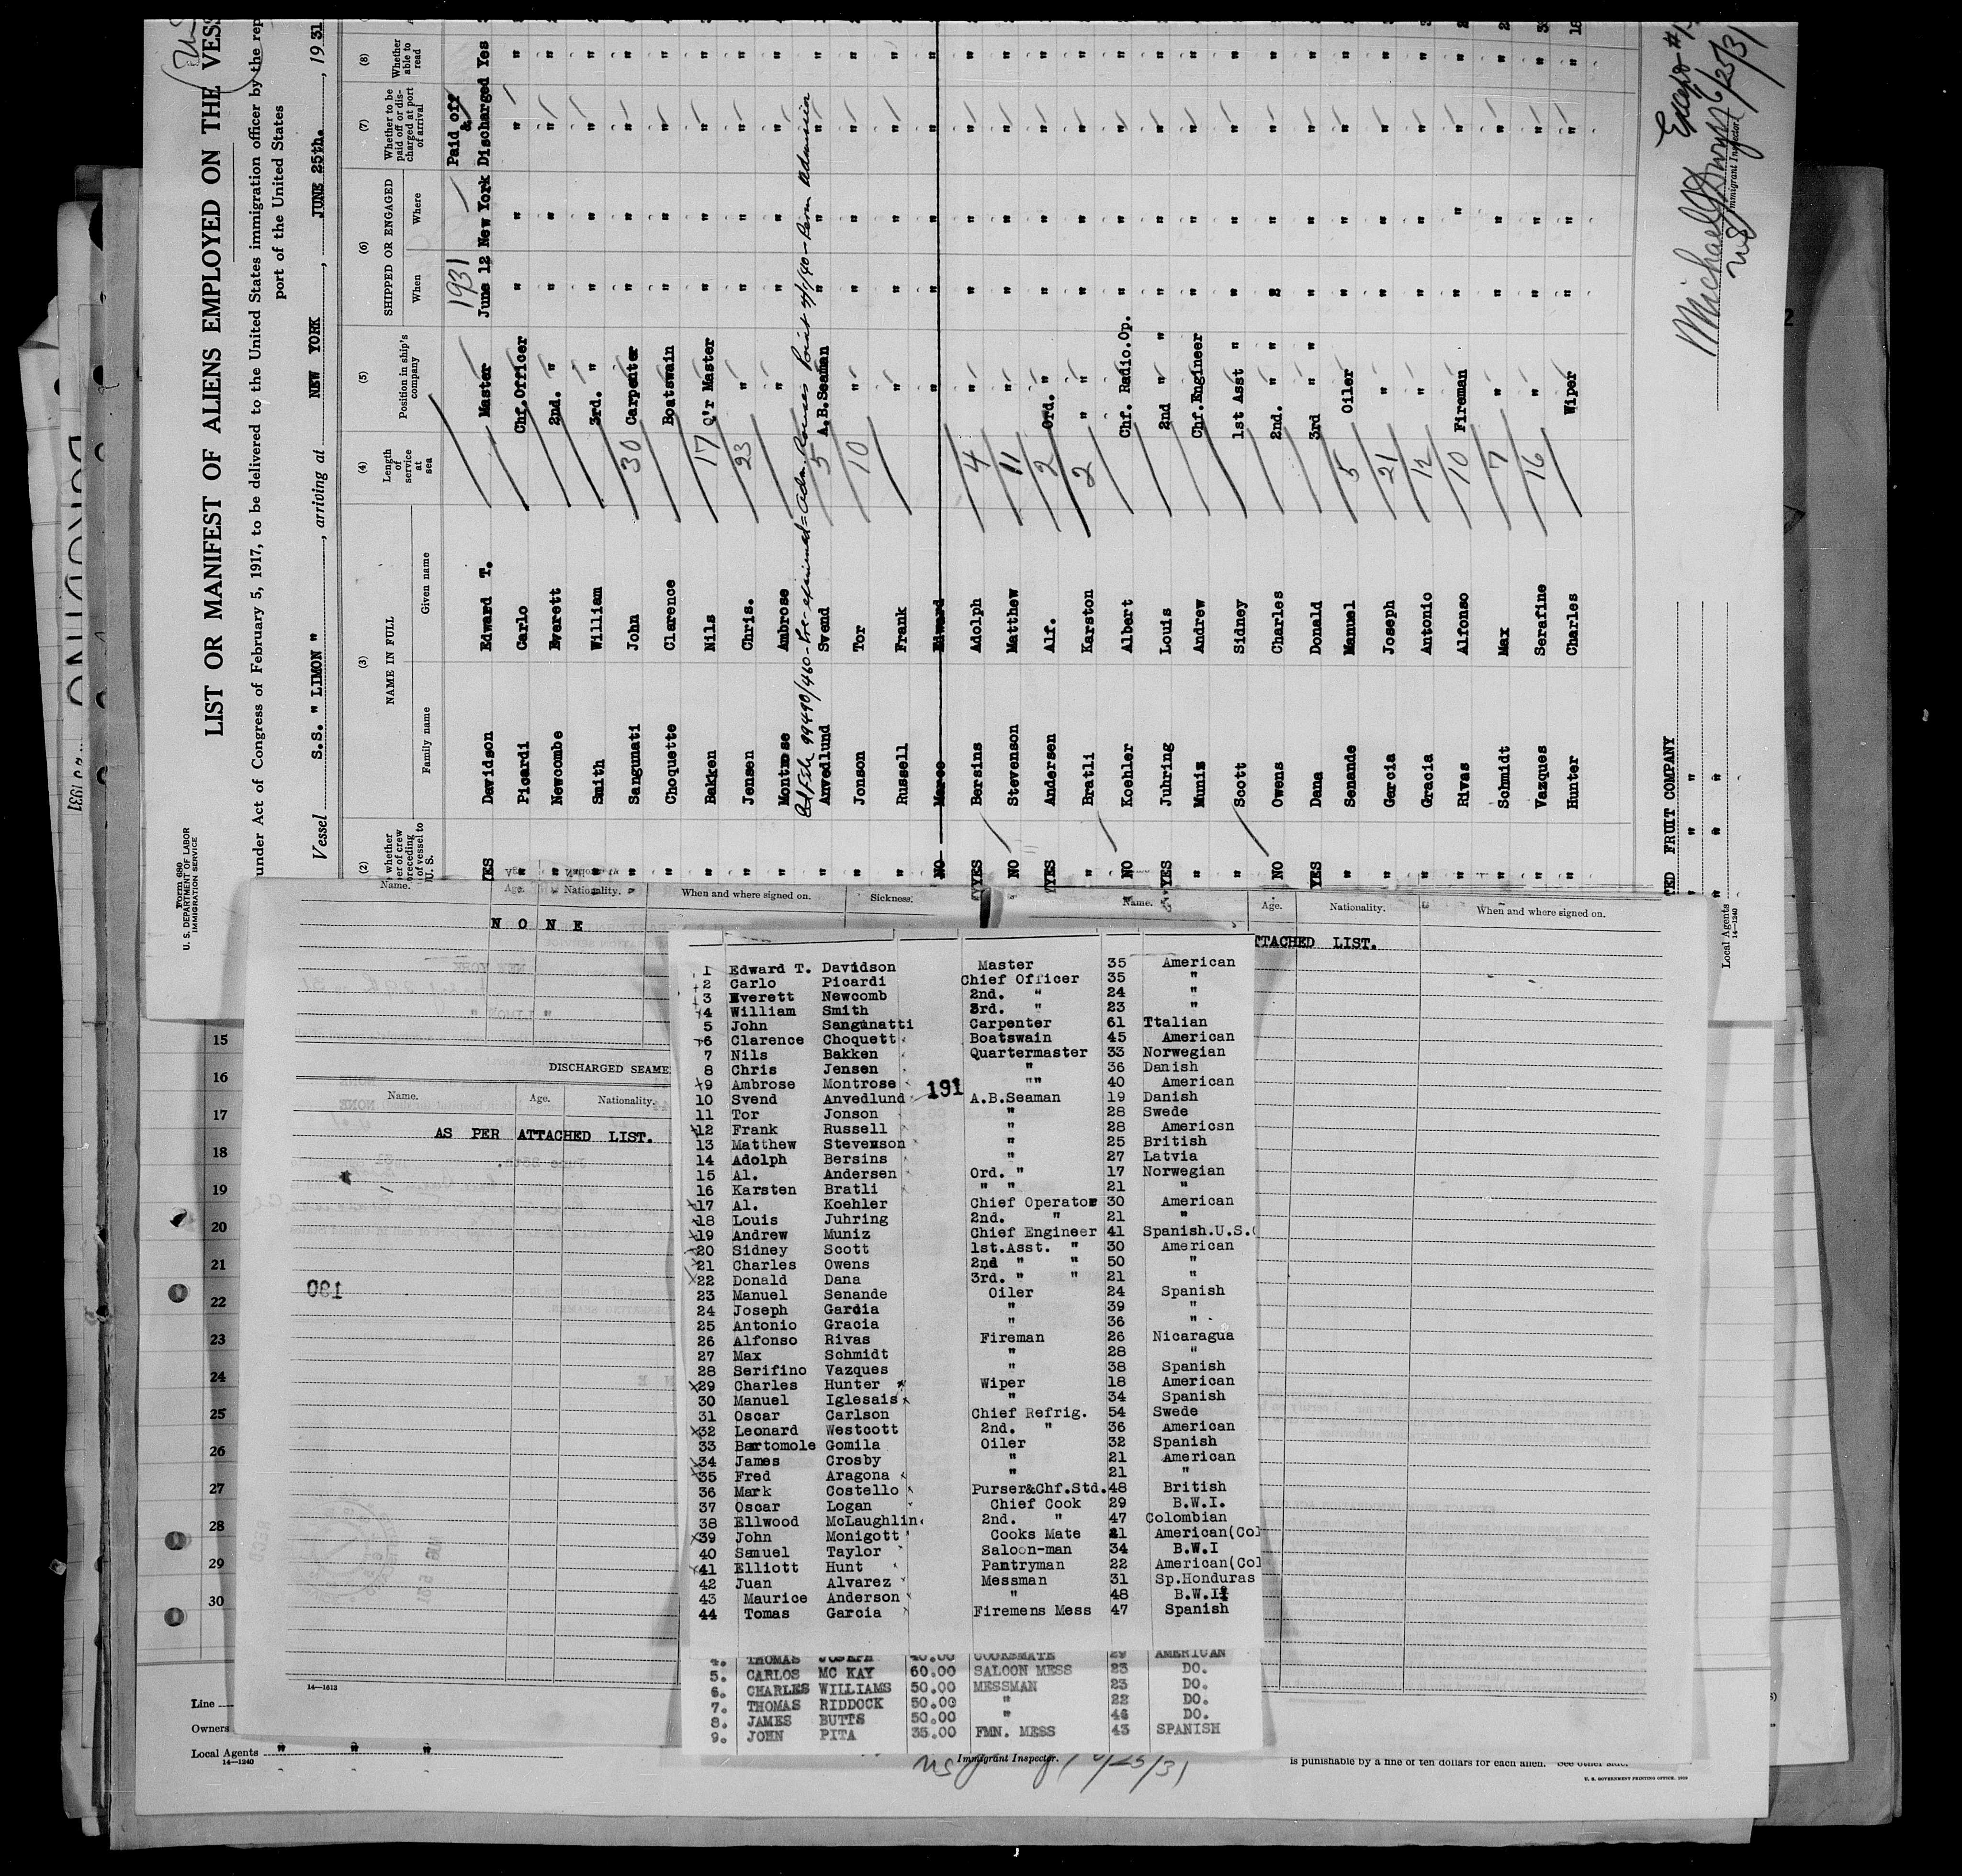 Form 680
U. S. DEPARTMENT OF LABOR
IMMIGRATION SERVICE
LIST OR MANIFEST OF ALIENS EMPLOYED ON THE VESS
under Act of Congress of February 5, 1917, to be delivered to the United States immigration officer by the rep
port of the United States
Vessel S.S. " LIMON " , arriving at NEW YORK , JUNE 25th. , 19 31
(2) (3) (4) (5) (6) (7) (8)
whether
er of crew
preceding
of vessel to
U. S.
NAME IN FULL
Family name Given name
Length of service at sea
Position in ship's company
SHIPPED OR ENGAGED
When Where
Whether to be paid off or discharged at port of arrival
Whether able to read
1931 Paid off
YES Davidson Edward T. Master June 12 New York & Discharged Yes
" Picardi Carlo Chf.Officer " " " "
" Newcombe Everett 2nd. " " " " "
" Smith William 3rd. " " " " "
" Sangunati John 30 Carpenter " " " "
" Choquette Clarence Boatswain " " " "
" Bakken Nils 17 Q'r Master " " " "
" Jensen Chris. 23 " " " " "
" Montrose Ambrose " " " " "
" Anvedlund Svend 5 A.B.Seaman " " " "
" Jonson Tor 10 " " " " "
" Russell Frank " " " " "
NO Marco Edward " " " " "
YES Bersins Adolph 4 " " " " "
NO Stevenson Matthew 11 " " " " "
YES Andersen Alf. 2 Ord. " " " " "
" Bratli Karston 2 " " " " "
NO Koehler Albert Chf. Radio.Op. " " " "
YES Juhring Louis 2nd " " " " " "
" Muniz Andrew Chf.Engineer " " " "
" Scott Sidney 1st Asst " " " " "
NO Owens Charles 2nd. " " " " " "
YES Dana Donald 3rd " " " " " "
" Senande Manuel 5 Oiler " " " "
" Garcia Joseph 21 " " " " "
" Gracia Antonio 12 " " " " "
" Rivas Alfonso 10 Fireman " " " "
" Schmidt Max 7 " " " " "
" Vazques Serafine 16 " " " " "
" Hunter Charles Wiper " " " "
TED FRUIT COMPANY
Local Agents
14—1240
Except #1
6/25/31
Immigrant Inspector.
Name. Age. Nationality. When and where signed on. Sickness. Name. Age. Nationality. When and where signed on.
N O N E
TTACHED LIST.
DISCHARGED SEAME
Name. Age. Nationality.
AS PER ATTACHED LIST.
14—1613
191
1 Edward T. Davidson Master 35 American
2 Carlo Picardi Chief Officer 35 "
3 Everett Newcomb 2nd. " 24 "
4 William Smith 3rd. " 23 "
5 John Sangunatti Carpenter 61 Ttalian
6 Clarence Choquett Boatswain 45 American
7 Nils Bakken Quartermaster 33 Norwegian
8 Chris Jensen " 36 Danish
9 Ambrose Montrose "" 40 American
10 Svend Anvedlund A.B.Seaman 19 Danish
11 Tor Jonson " 28 Swede
12 Frank Russell " 28 Americsn
13 Matthew Stevenson " 25 British
14 Adolph Bersins " 27 Latvia
15 Al. Andersen Ord. " 17 Norwegian
16 Karsten Bratli " " 21 "
17 Al. Koehler Chief Operator 30 American
18 Louis Juhring 2nd. " 21 "
19 Andrew Muniz Chief Engineer 41 Spanish.U.S.
20 Sidney Scott 1st.Asst. " 30 American
21 Charles Owens 2nd " " 50 "
22 Donald Dana 3rd. " " 21 "
23 Manuel Senande Oiler 24 Spanish
24 Joseph Garcia " 39 "
25 Antonio Gracia " 36 "
26 Alfonso Rivas Fireman 26 Nicaragua
27 Max Schmidt " 28 "
28 Serifino Vazques " 38 Spanish
29 Charles Hunter Wiper 18 American
30 Manuel Iglesais " 34 Spanish
31 Oscar Carlson Chief Refrig. 54 Swede
32 Leonard Westcott 2nd. " 36 American
33 Bartomole Gomila Oiler 32 Spanish
34 James Crosby " 21 American
35 Fred Aragona " 21 "
36 Mark Costello Purser&Chf.Std. 48 British
37 Oscar Logan Chief Cook 29 B.W.I.
38 Ellwood McLaughlin 2nd. " 47 Colombian
39 John Monigott Cooks Mate 21 American(Col
40 Samuel Taylor Saloon-man 34 B.W.I
41 Elliott Hunt Pantryman 22 American(Col
42 Juan Alvarez Messman 31 Sp.Honduras
43 Maurice Anderson " 48 B.W.I
44 Tomas Garcia Firemens Mess 47 Spanish
4. THOMAS JOSEPH 40.00 COOKSMATE 29 AMERICAN
5. CARLOS MC KAY 60.00 SALOON MESS 23 DO.
6. CHARLES WILLIAMS 50.00 MESSMAN 23 DO.
7. THOMAS RIDDOCK 50.00 " 22 DO.
8. JAMES BUTTS 50.00 " 46 DO.
9. JOHN PITA 35.00 FMN. MESS 43 SPANISH
15
16
17
18
19
20
21
22
23
24
25
26
27
28
29
30
Line
Owners
Local Agents " " "
14—1240
Immigrant Inspector.
6/25/31
is punishable by a fine of ten dollars for each alien. See other side.
U. S. GOVERNMENT PRINTING OFFICE